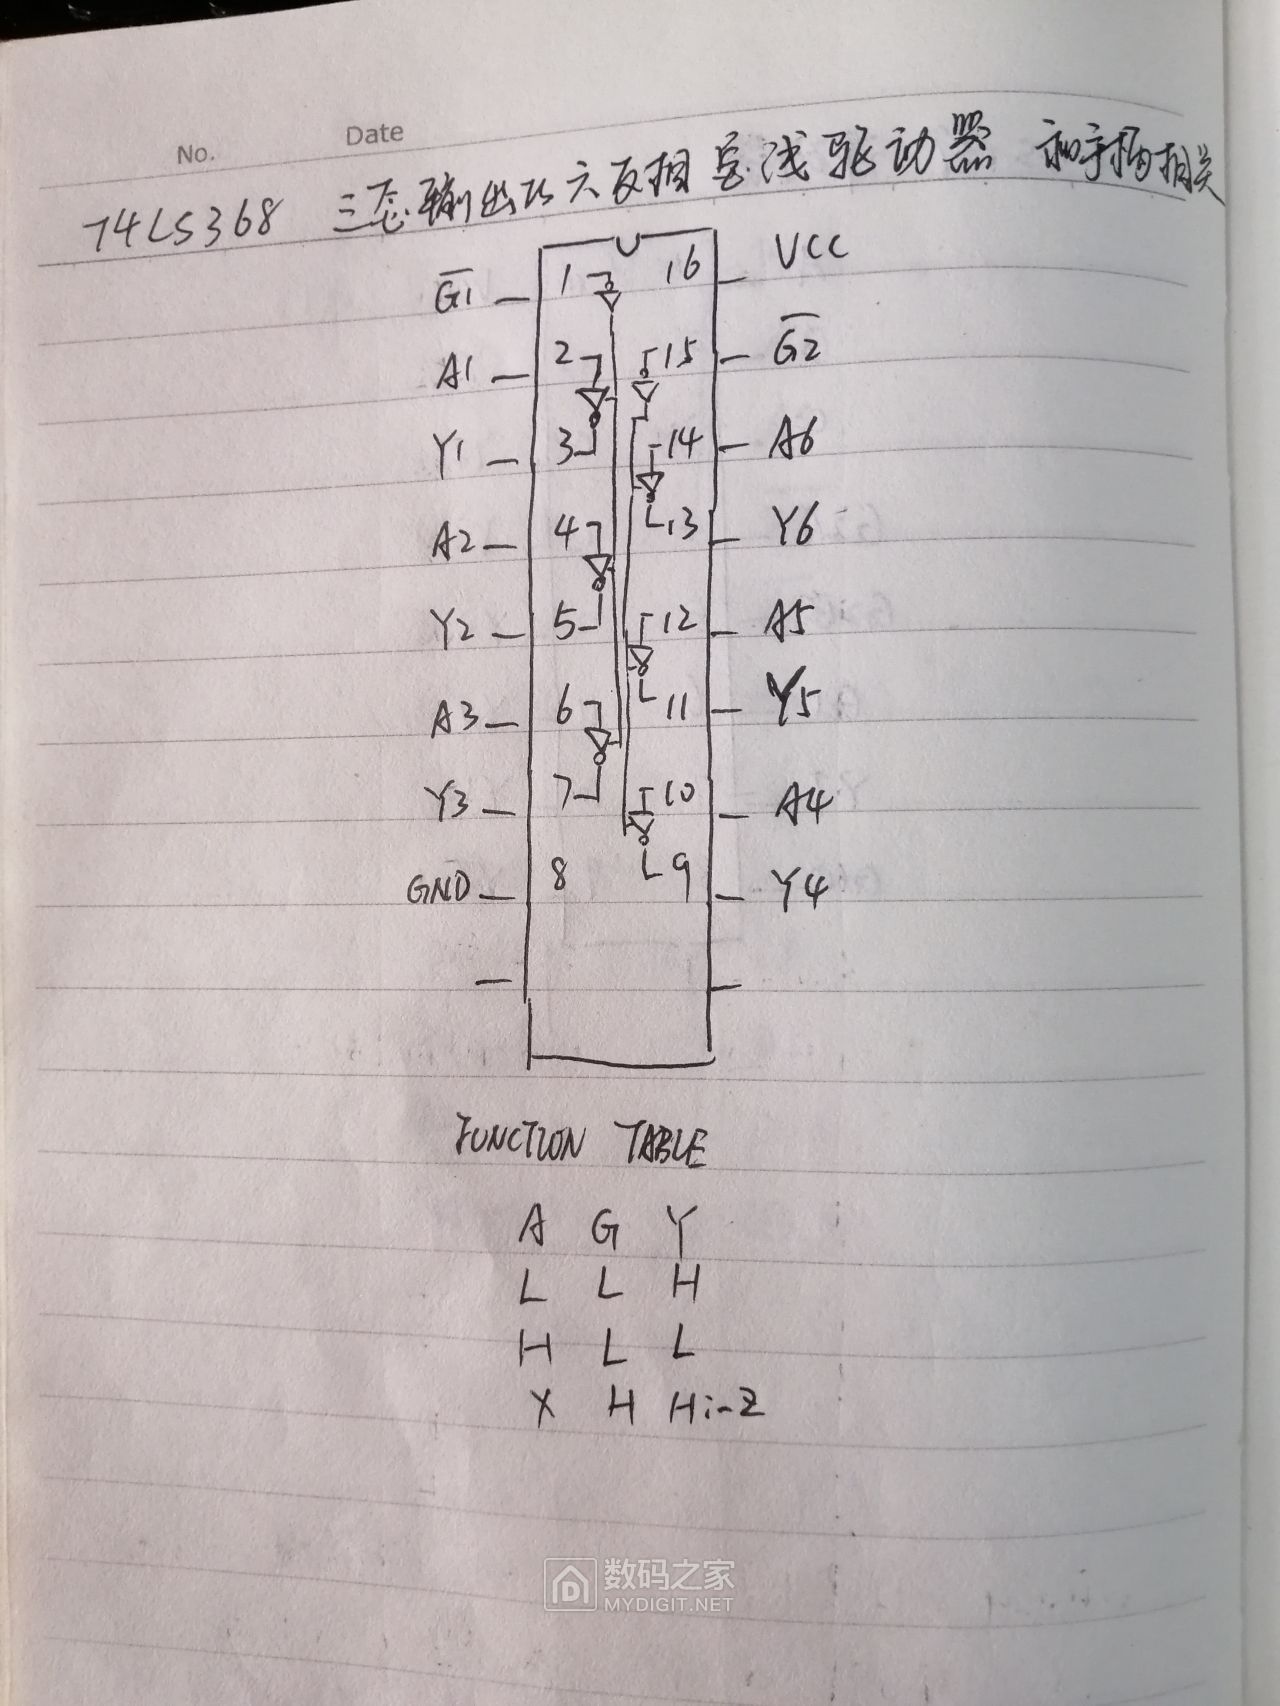 No. Date
74LS368 三态输出六反相总线驱动器 和手柄相关
G1 1 16 VCC
A1 2 15 G2
Y1 3 14 A6
A2 4 13 Y6
Y2 5 12 A5
A3 6 11 Y5
Y3 7 10 A4
GND 8 9 Y4
FUNCTION TABLE
A G Y
L L H
H L L
X H Hi-Z
数码之家
MYDIGIT.NET